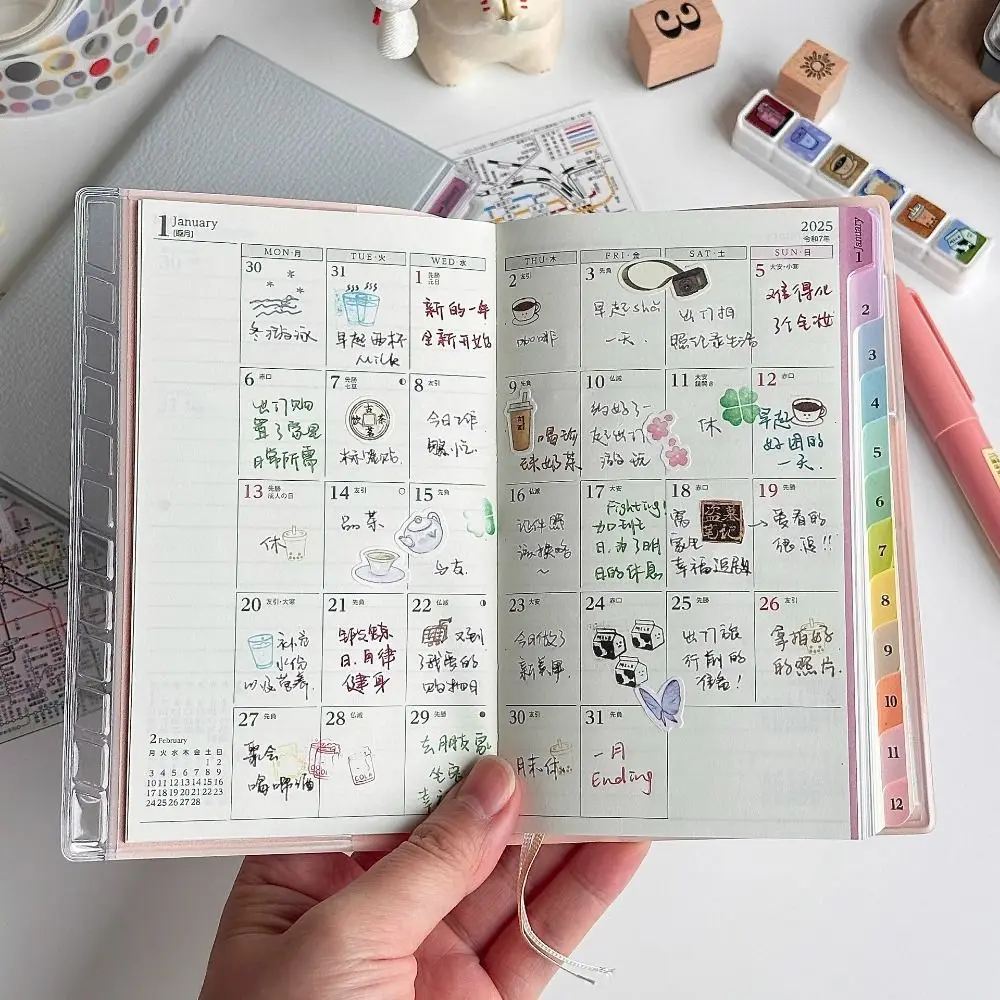 1 January
[睦月]
2025
令和7年
MON・月
TUE・火
WED・水
THU・木
FRI・金
SAT・土
SUN・日
30
31
早起一杯
Milk
1 先勝
元日
新的一年
全新开始
2 友引
咖啡
3 先負
早起
一天.
出门拍
照纪录生活
5 大安・小寒
难得化
了个全妆
6 赤口
出门购
置了家里
日常所需
7 先勝
七草
8 友引
今日工作
繁忙.
9 先負
喝珍
珠奶茶
10 仏滅
约好了一
起出门
游玩
11 大安
鏡開き
休
12 赤口
早起
好困的
一天.
13 先勝
成人の日
休
14 友引
品茶
15 先負
16 仏滅
证件照
17 大安
Fighting!
加油
日.为了明
日的休息
18 赤口
窝
家里
幸福追剧
盗墓
笔记
19 先勝
→爱看的
很 !!
20 友引・大寒
补充
水份
以及营养.
21 先負
锻炼
日.自律
健身
22 仏滅
又到
了
购物日
23 大安
今日做了
新美甲
24 赤口
MILK
MILK
MILK
25 先勝
出门旅
行前的
准备!
26 友引
拿拍好
的照片.
27 先負
聚会
喝啤酒
28 仏滅
COLA
29 先勝
去朋友家
30 友引
月末休
31 先負
一月
Ending
2 February
月 火 水 木 金 土 日
1 2
3 4 5 6 7 8 9
10 11 12 13 14 15 16
17 18 19 20 21 22 23
24 25 26 27 28
January
1
2
3
4
5
6
7
8
9
10
11
12
3